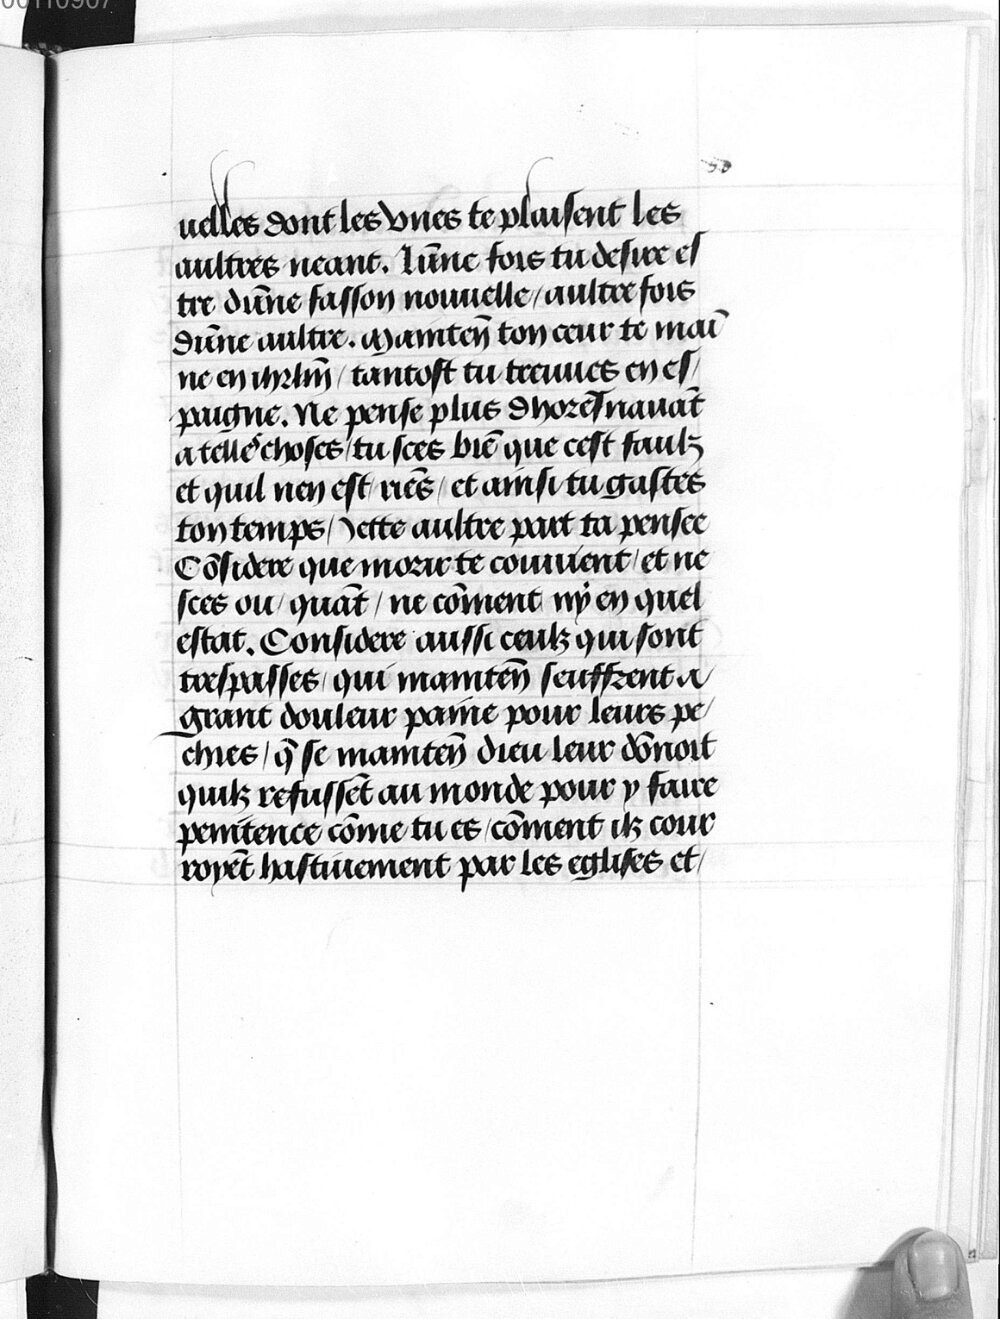 00110907
uelles dont les vnes te plaisent les
aultres neant. Lūne fois tu desire es
tre dūne fasson nouuelle / aultre fois
dūne aultre. Maintēn ton cœur te mai
ne en ihrlm̄ / tantost tu treuues en es/
paigne. Ne pense plus dhores nauāt
a telles choses / tu sces biē que cest faulz
et quil nen est riēs / et ainsi tu gastes
ton temps / Iette aultre part ta pensee
Cōsidere que morir te conuient / et ne
sces ou / quāt / ne cōment ny en quel
estat. Considere aussi ceulz qui sont
trespasses / qui maintēn seuffrent a
grant douleur paine pour leurs pe/
chies / q̄ se maintēn dieu leur dōnoit
quilz refussēt au monde pour y faire
penitence cōme tu es / cōment ilz cour
royēt hastiuement par les eglises et/